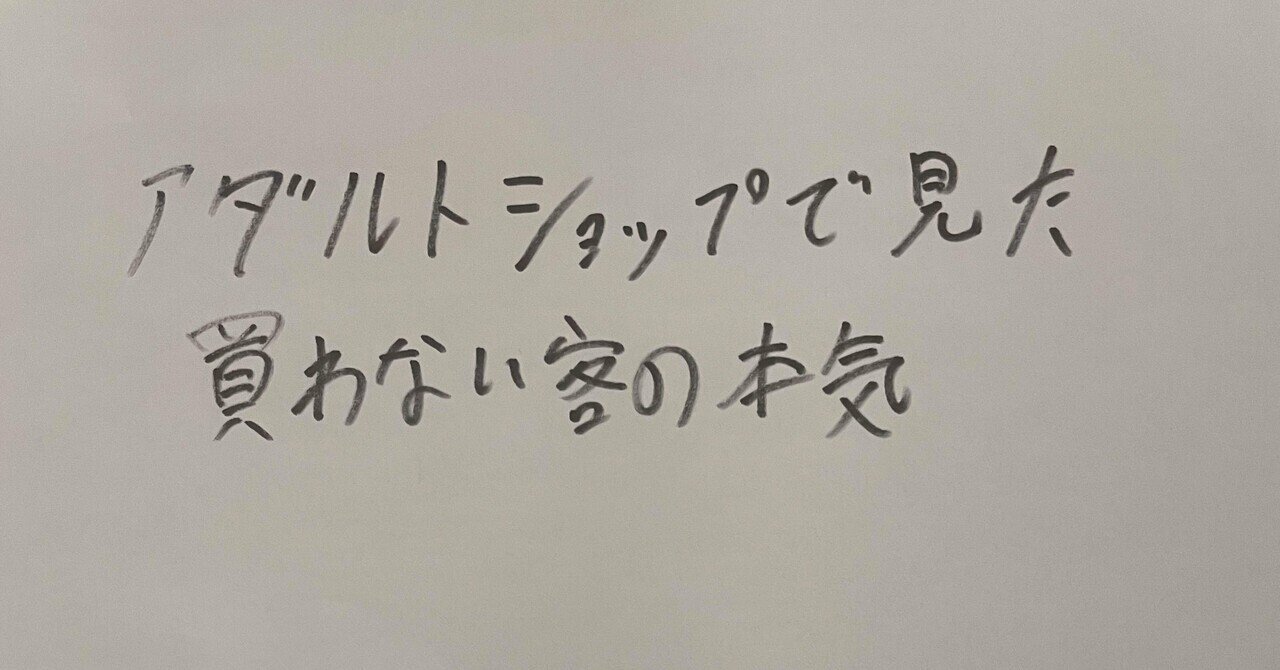 アダルトショップで見た
買わない客の本気